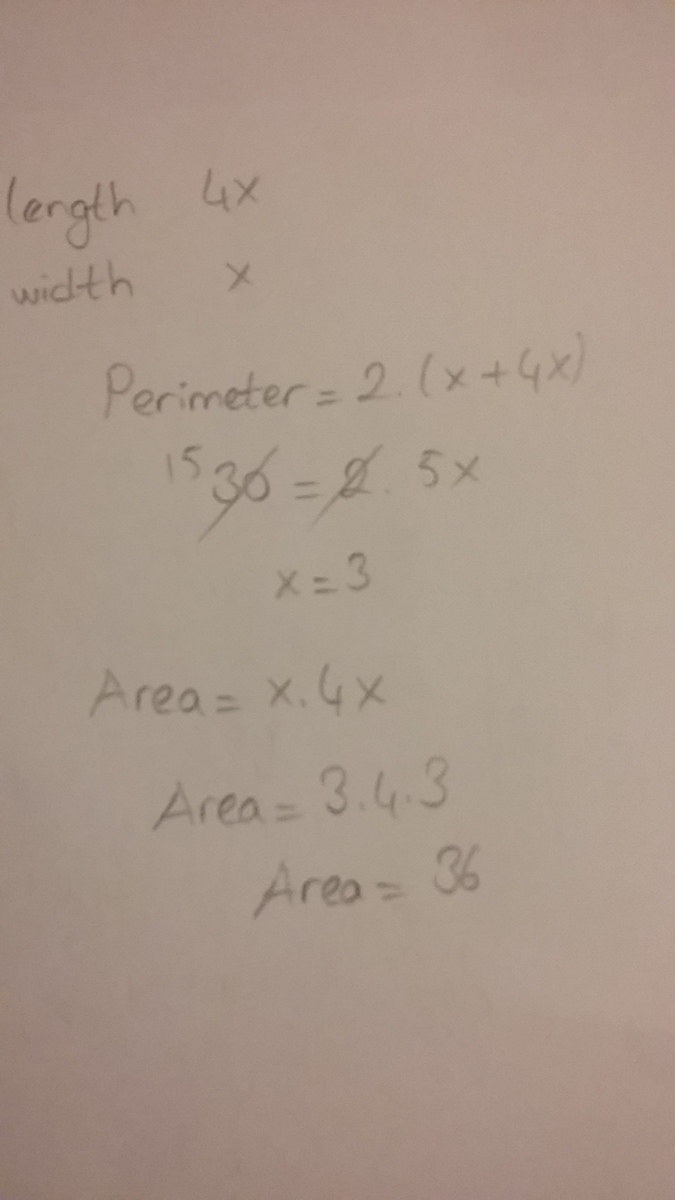 length 4x
width x
Perimeter = 2.(x+4x)
15 30 = 2. 5x
x = 3
Area = x.4x
Area = 3.4.3
Area = 36